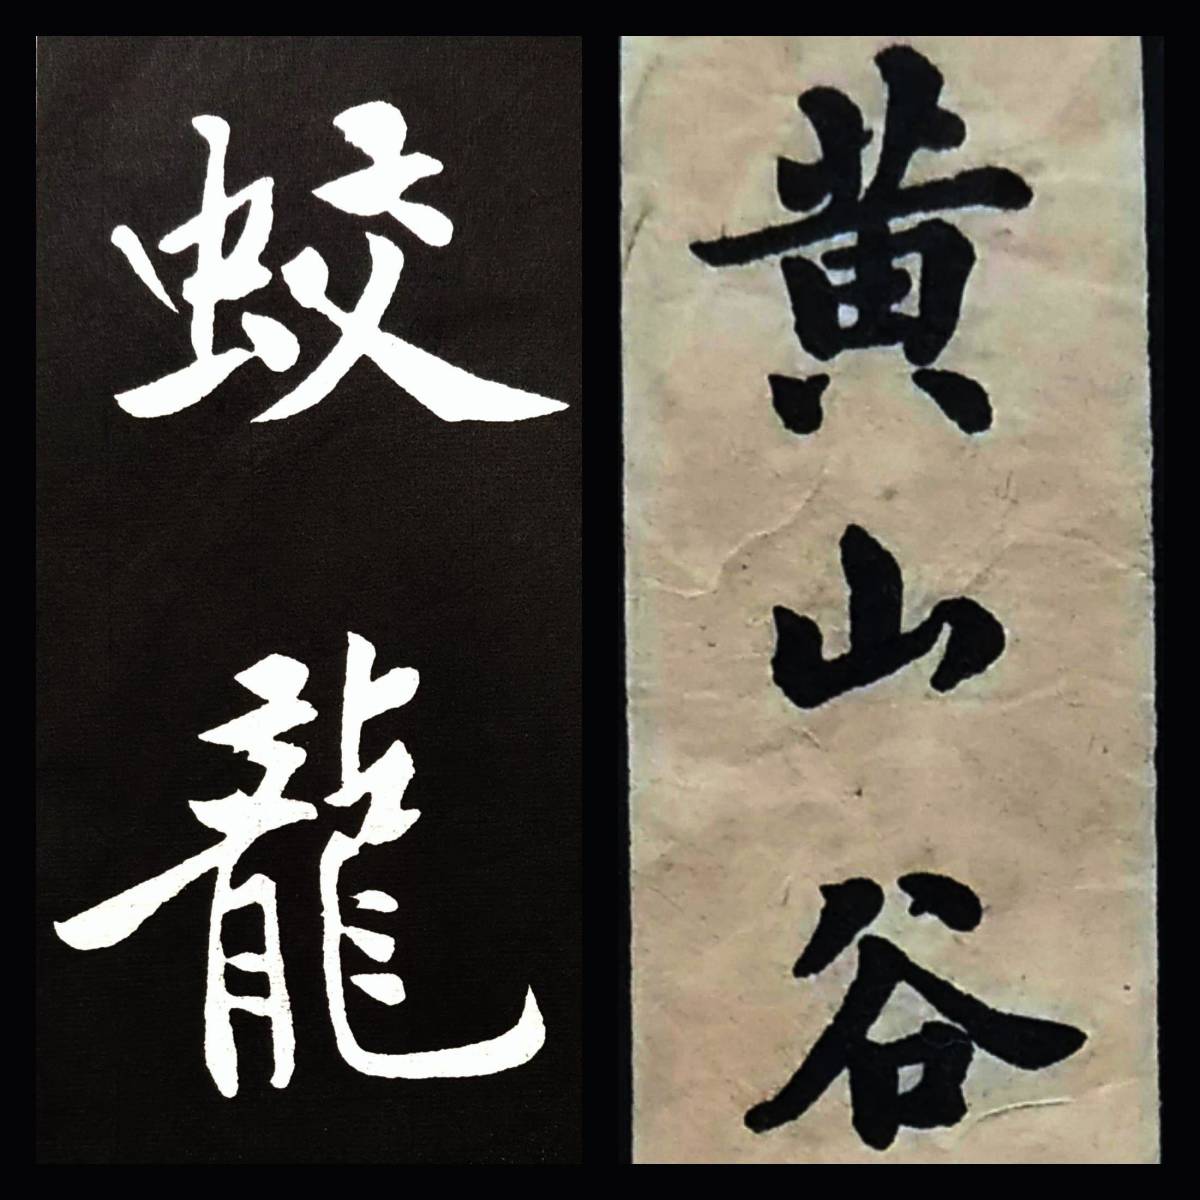 蛟龍
黄山谷